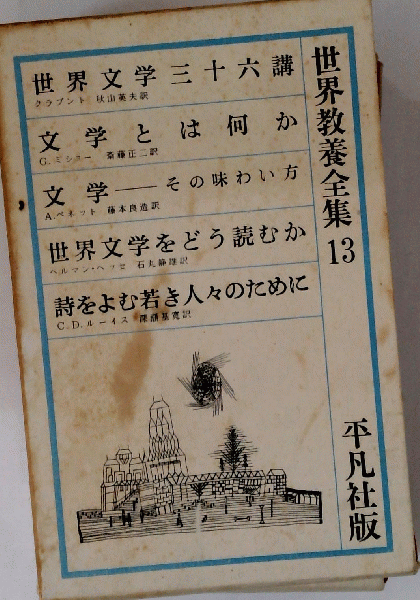 世界教養全集 13
世界文学三十六講
クラブント 秋山英夫訳
文学とは何か
G.ミショー 斎藤正二訳
文学——その味わい方
A.ベネット 藤本良造訳
世界文学をどう読むか
ヘルマン・ヘッセ 石丸静雄訳
詩をよむ若き人々のために
C.D.ルーイス 深瀬基寛訳
平凡社版